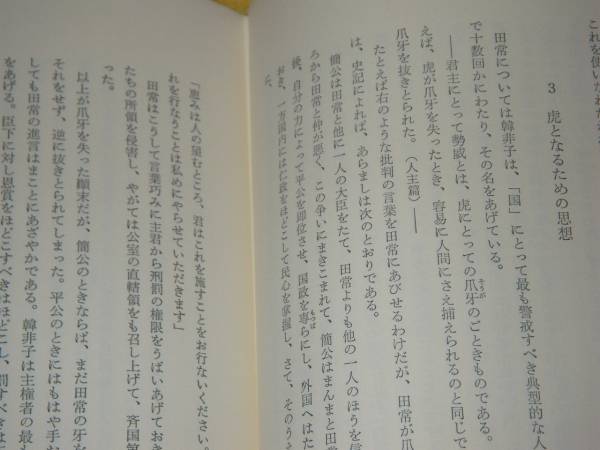 これを使いこなした
3 虎となるための思想
田常については韓非子は、「国」にとって最も警戒すべき典型的な人
で十数回かにわたり、その名をあげている。
――君主にとって勢威とは、虎にとっての爪牙のごときものである。
えば、虎が爪牙を失ったとき、容易に人間にさえ捕えられるのと同じで
爪牙を抜きとられた。(人主篇)――
たとえば右のような批判の言葉を田常にあびせるわけだが、田常が爪
は、史記によれば、あらましは次のとおりである。
簡公は田常と他に一人の大臣をたて、田常よりも他の一人のほうを信
ろから田常と仲が悪く、この争いにまきこまれて、簡公はまんまと田常
後、自分の力によって平公を即位させ、国政を専らにし、外国へはた
おき、一方国内には仁政をほどこして民心を掌握し、さて、そのうえ
「恵みは人の望むところ、君はこれを施すことをお行ないください。
れを行なうことは私めにやらせていただきます」
田常はこうして言葉巧みに主君から刑罰の権限をうばいあげておき
たちの所領を侵害し、やがては公室の直轄領をも召し上げて、斉国第
った。
以上が爪牙を失った顛末だが、簡公のときならば、まだ田常の牙を
それをせず、逆に抜きとられてしまった。平公のときにはもはや手な
しても田常の進言はまことにあざやかである。韓非子は主権者の最も
をあげる。臣下に対し恩賞をほどこすべきはほどこし、罰すべきは